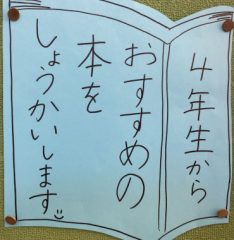 4年生から
おすすめの
本を
しょうかいします。